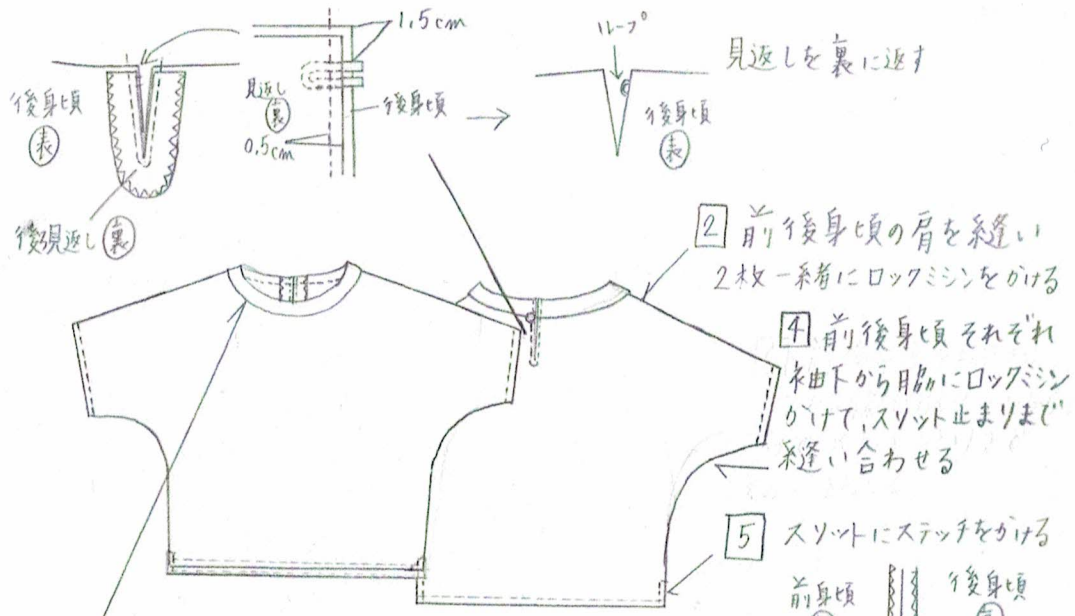 1.5cm
ループ
見返しを裏に返す
後身頃
表
見返し
裏
後身頃
0.5cm
後身頃
表
後見返し 裏
2 前後身頃の肩を縫い
2枚一緒にロックミシンをかける
4 前後身頃それぞれ
袖下から脇にロックミシン
かけて、スリット止まりまで
縫い合わせる
5 スリットにステッチをかける
前身頃
後身頃